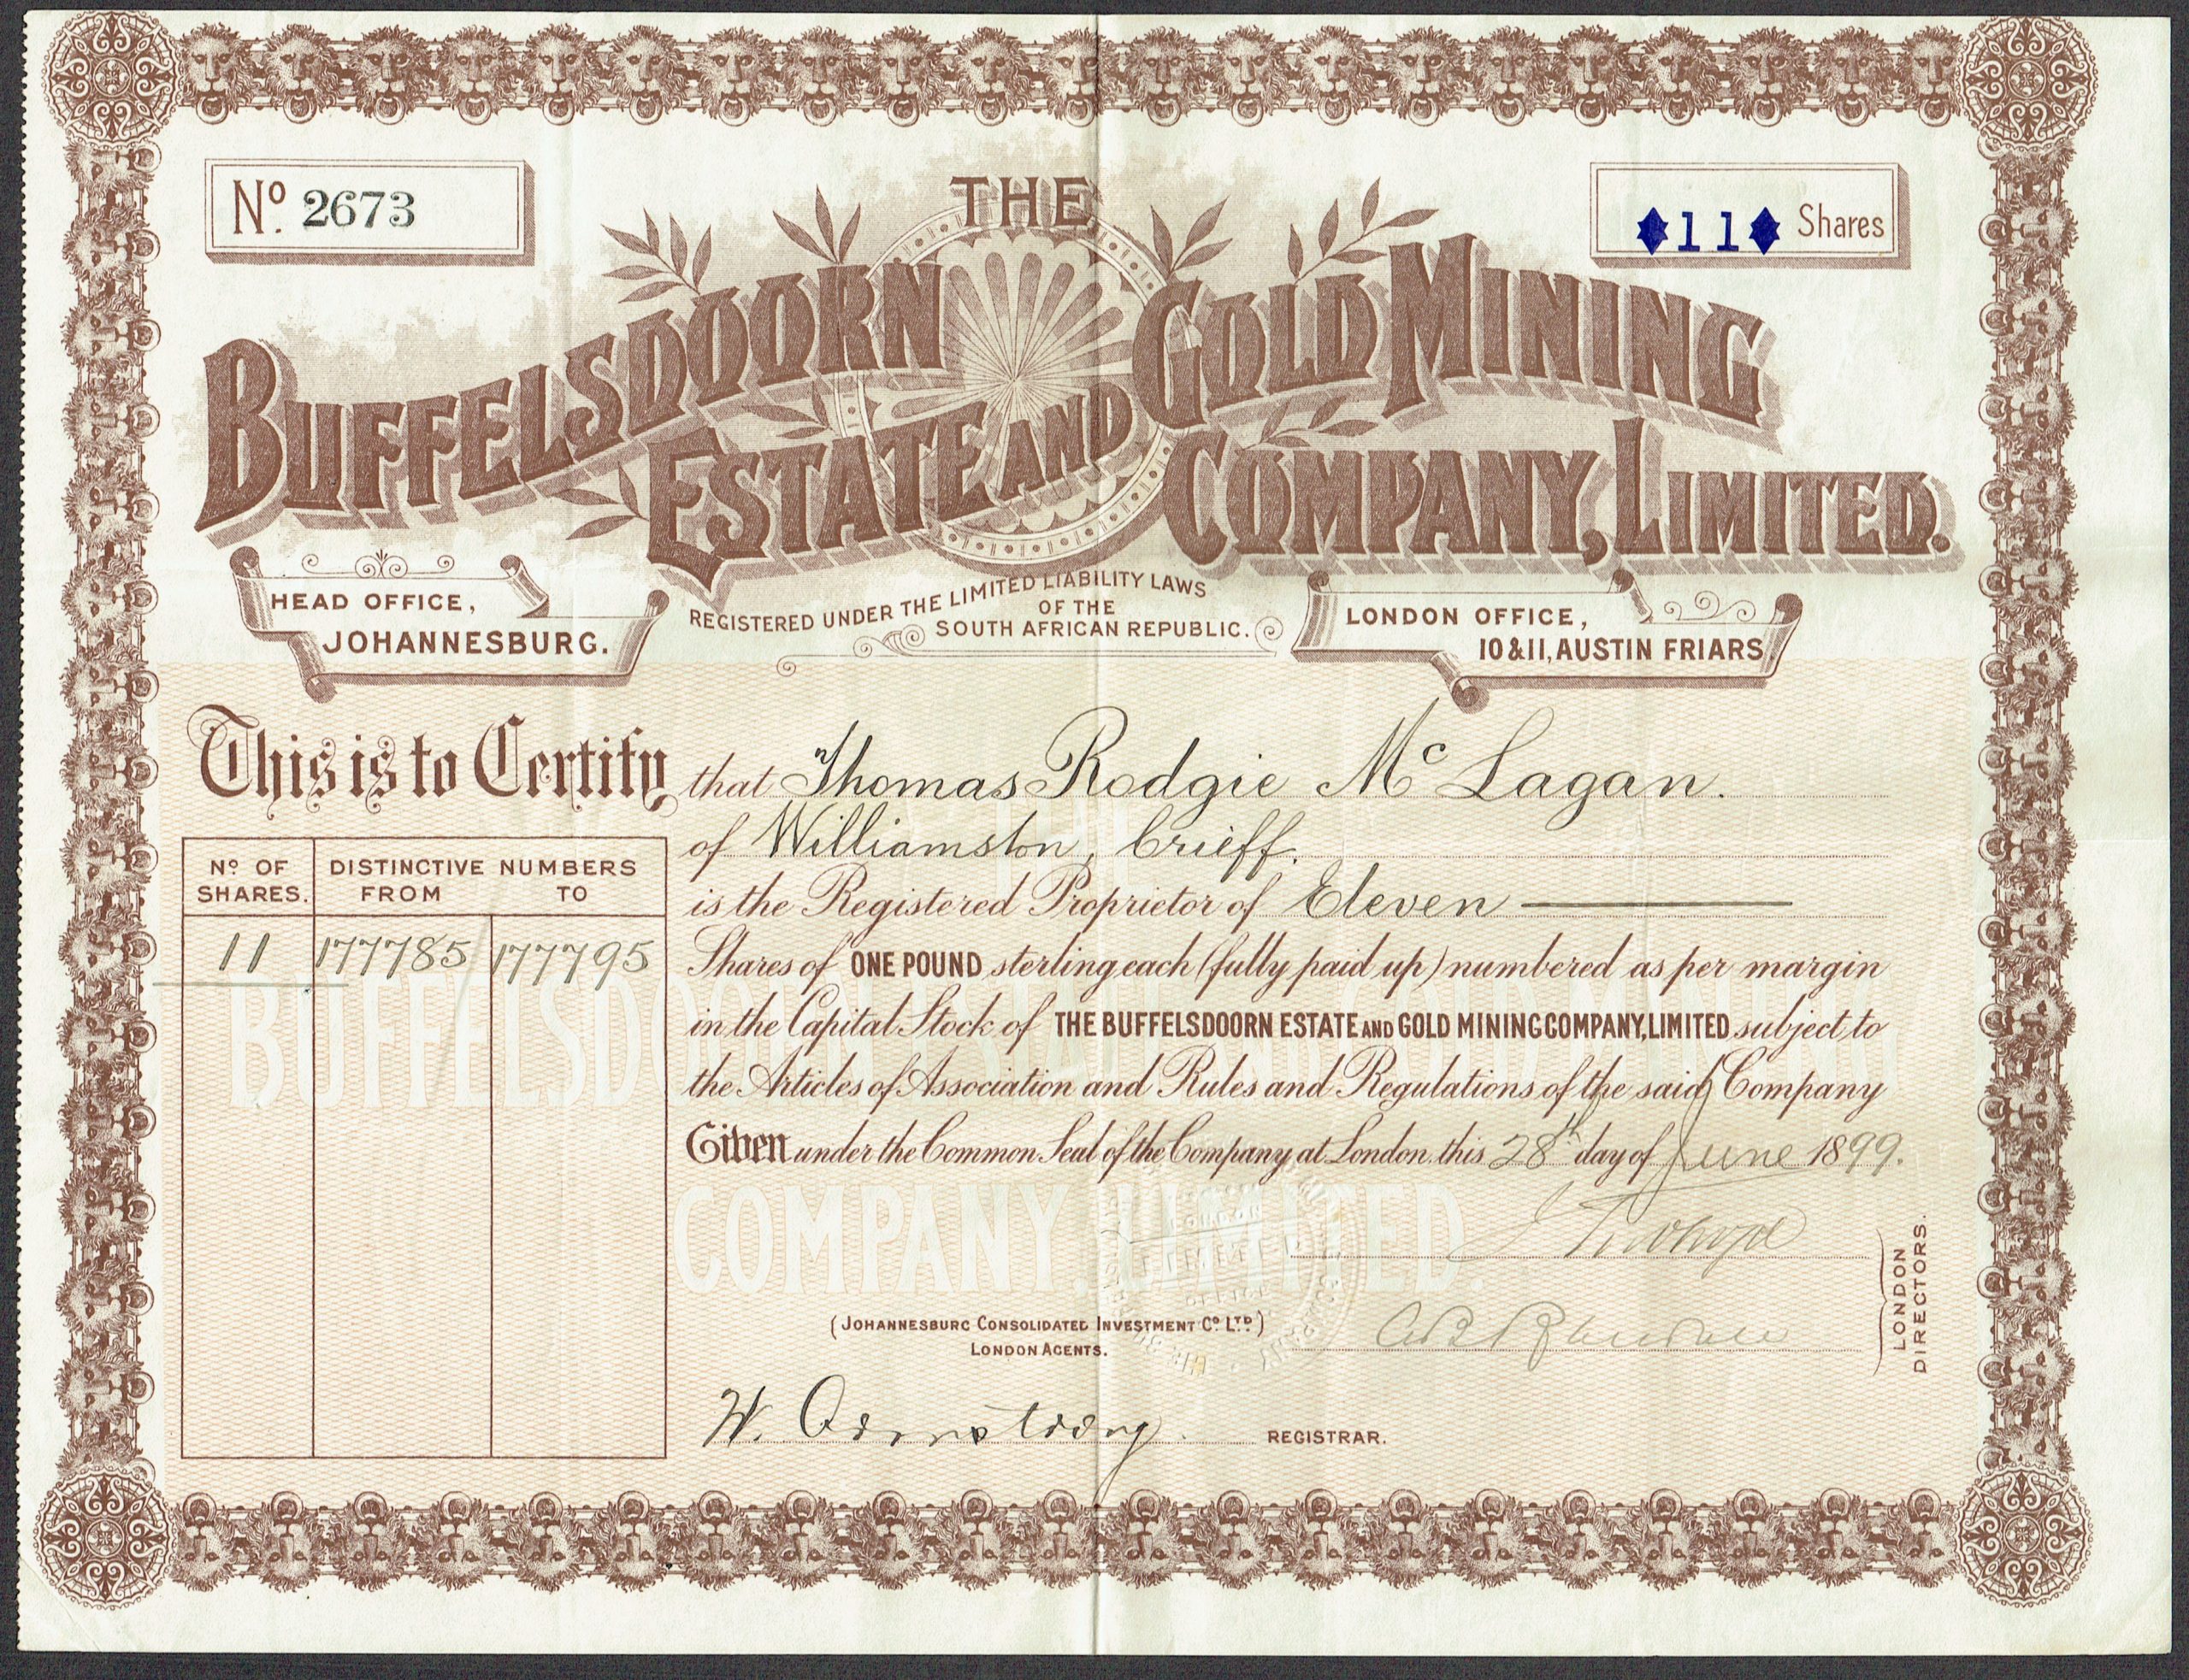 Nº. 2673
♦11♦ Shares
THE
BUFFELSDOORN
ESTATE AND
GOLD MINING
COMPANY, LIMITED.
HEAD OFFICE,
JOHANNESBURG.
REGISTERED UNDER THE LIMITED LIABILITY LAWS
OF THE
SOUTH AFRICAN REPUBLIC.
LONDON OFFICE,
10 & 11, AUSTIN FRIARS
This is to Certify that Thomas Rodgie McLagan.
of Williamston, Crieff.
is the Registered Proprietor of Eleven
Shares of ONE POUND sterling each (fully paid up) numbered as per margin
in the Capital Stock of THE BUFFELSDOORN ESTATE AND GOLD MINING COMPANY, LIMITED subject to
the Articles of Association and Rules and Regulations of the said Company
Given under the Common Seal of the Company at London this 28th day of June 1899.
Nº OF SHARES.
DISTINCTIVE NUMBERS
FROM TO
11 177785 177795
LONDON DIRECTORS.
(JOHANNESBURG CONSOLIDATED INVESTMENT Cº LTD)
LONDON AGENTS.
W. Armstrong. REGISTRAR.
BUFFELSDOORN
COMPANY, LIMITED.